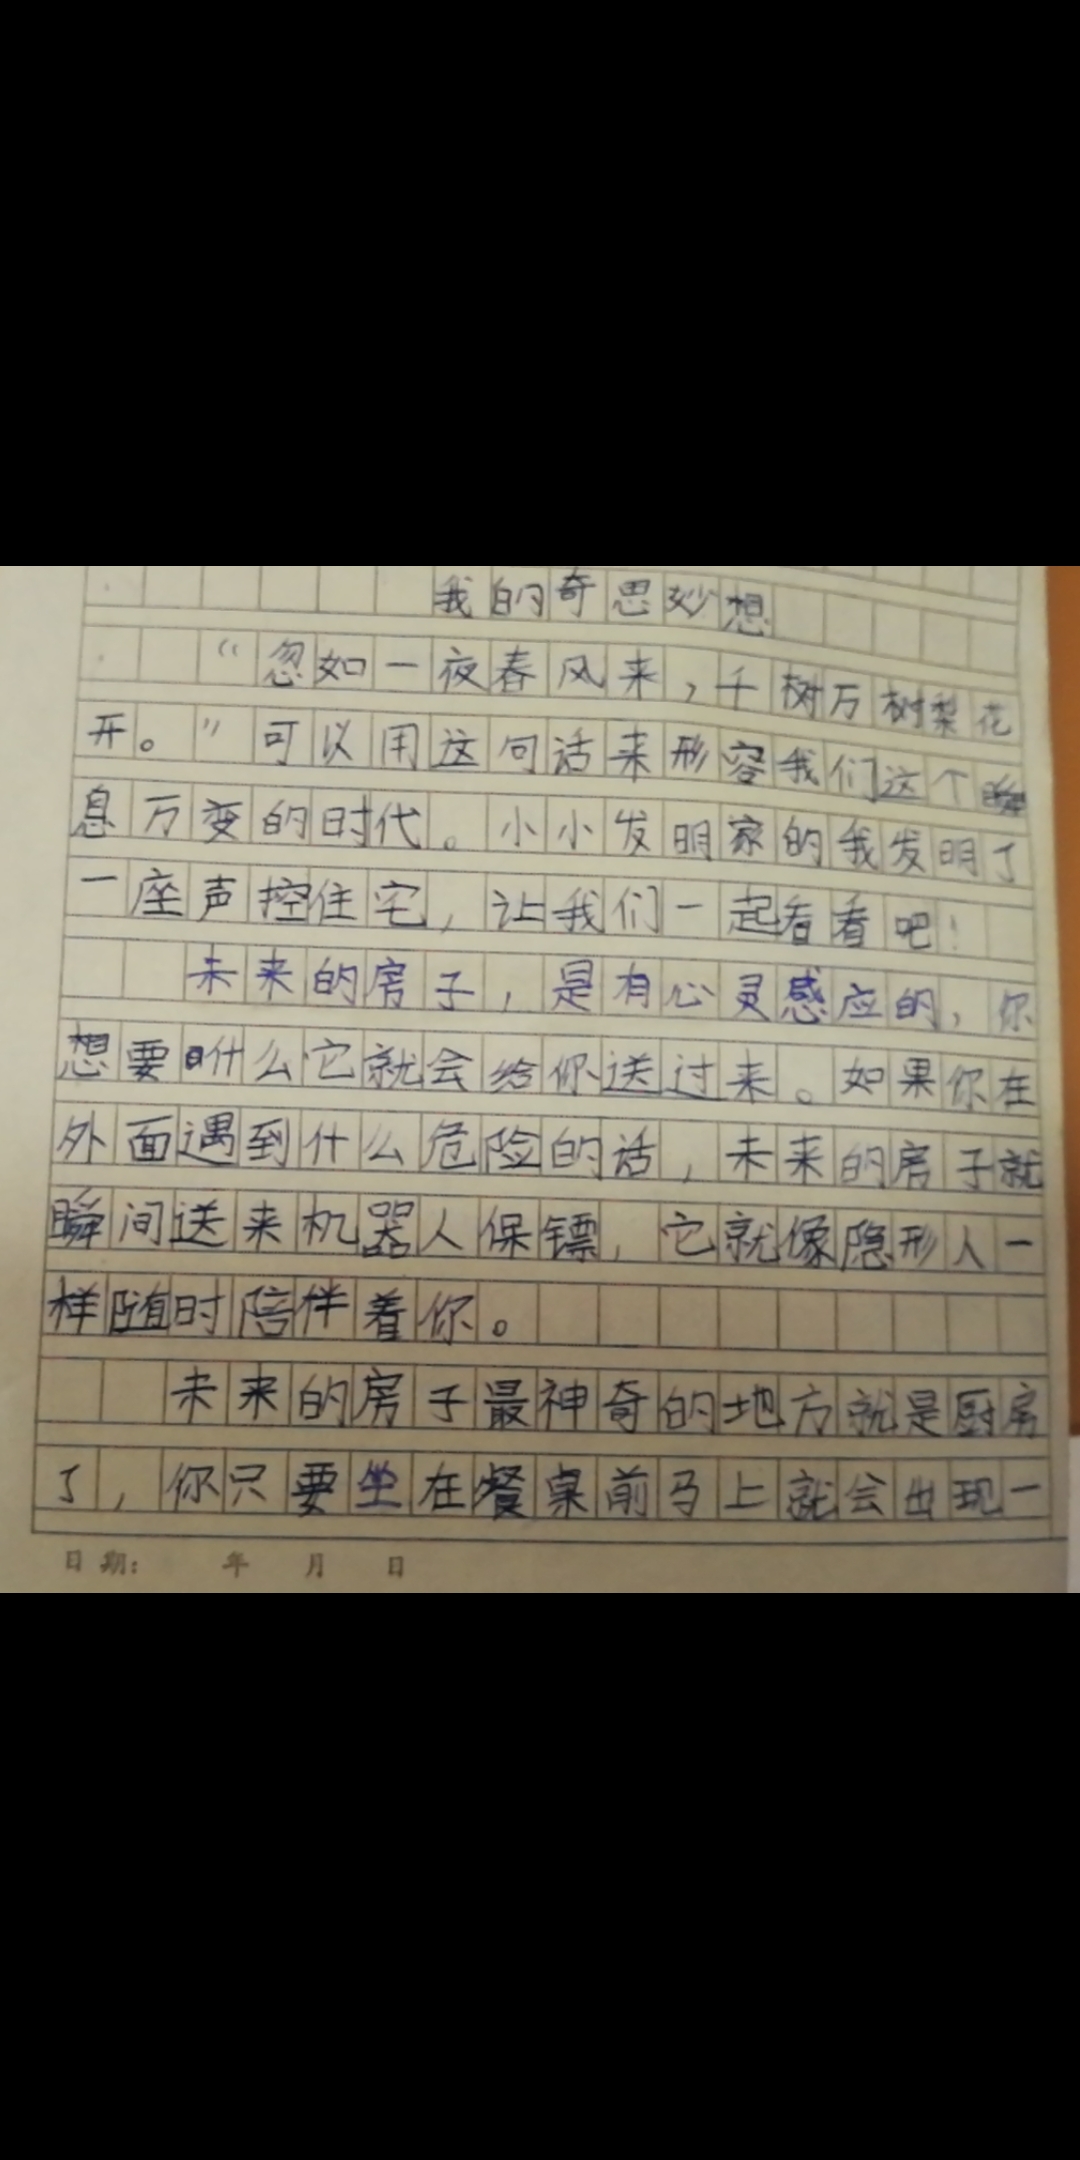 我的奇思妙想
“忽如一夜春风来，千树万树梨花
开。”可以用这句话来形容我们这个瞬
息万变的时代。小小发明家的我发明了
一座声控住宅，让我们一起看看吧！
未来的房子，是有心灵感应的，你
想要什么它就会给你送过来。如果你在
外面遇到什么危险的话，未来的房子就
瞬间送来机器人保镖，它就像隐形人一
样随时陪伴着你。
未来的房子最神奇的地方就是厨房
了，你只要坐在餐桌前马上就会出现一
日期： 年 月 日